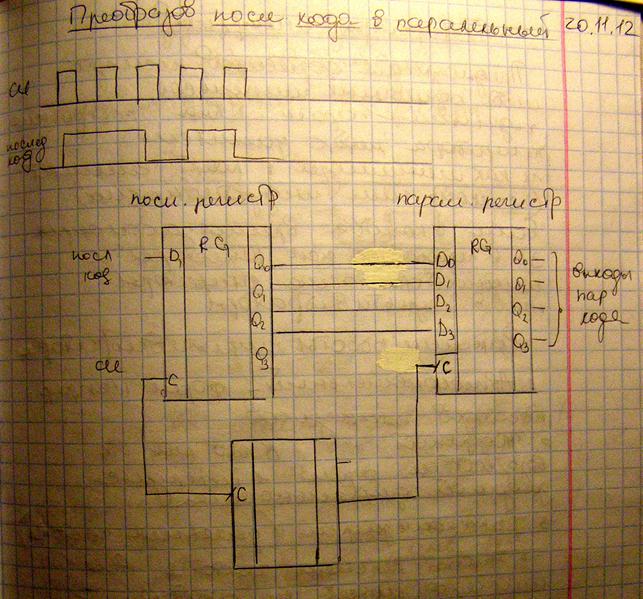 Преобразов посл кода в паралельный 20.11.12
си
послед
код
посл. регистр
парал. регистр
посл
код
D₁ RG Q₀
Q₁
Q₂
Q₃
си
C
D₀ RG Q₀
D₁ Q₁
D₂ Q₂
D₃ Q₃
C
выходы
пар
кода
C